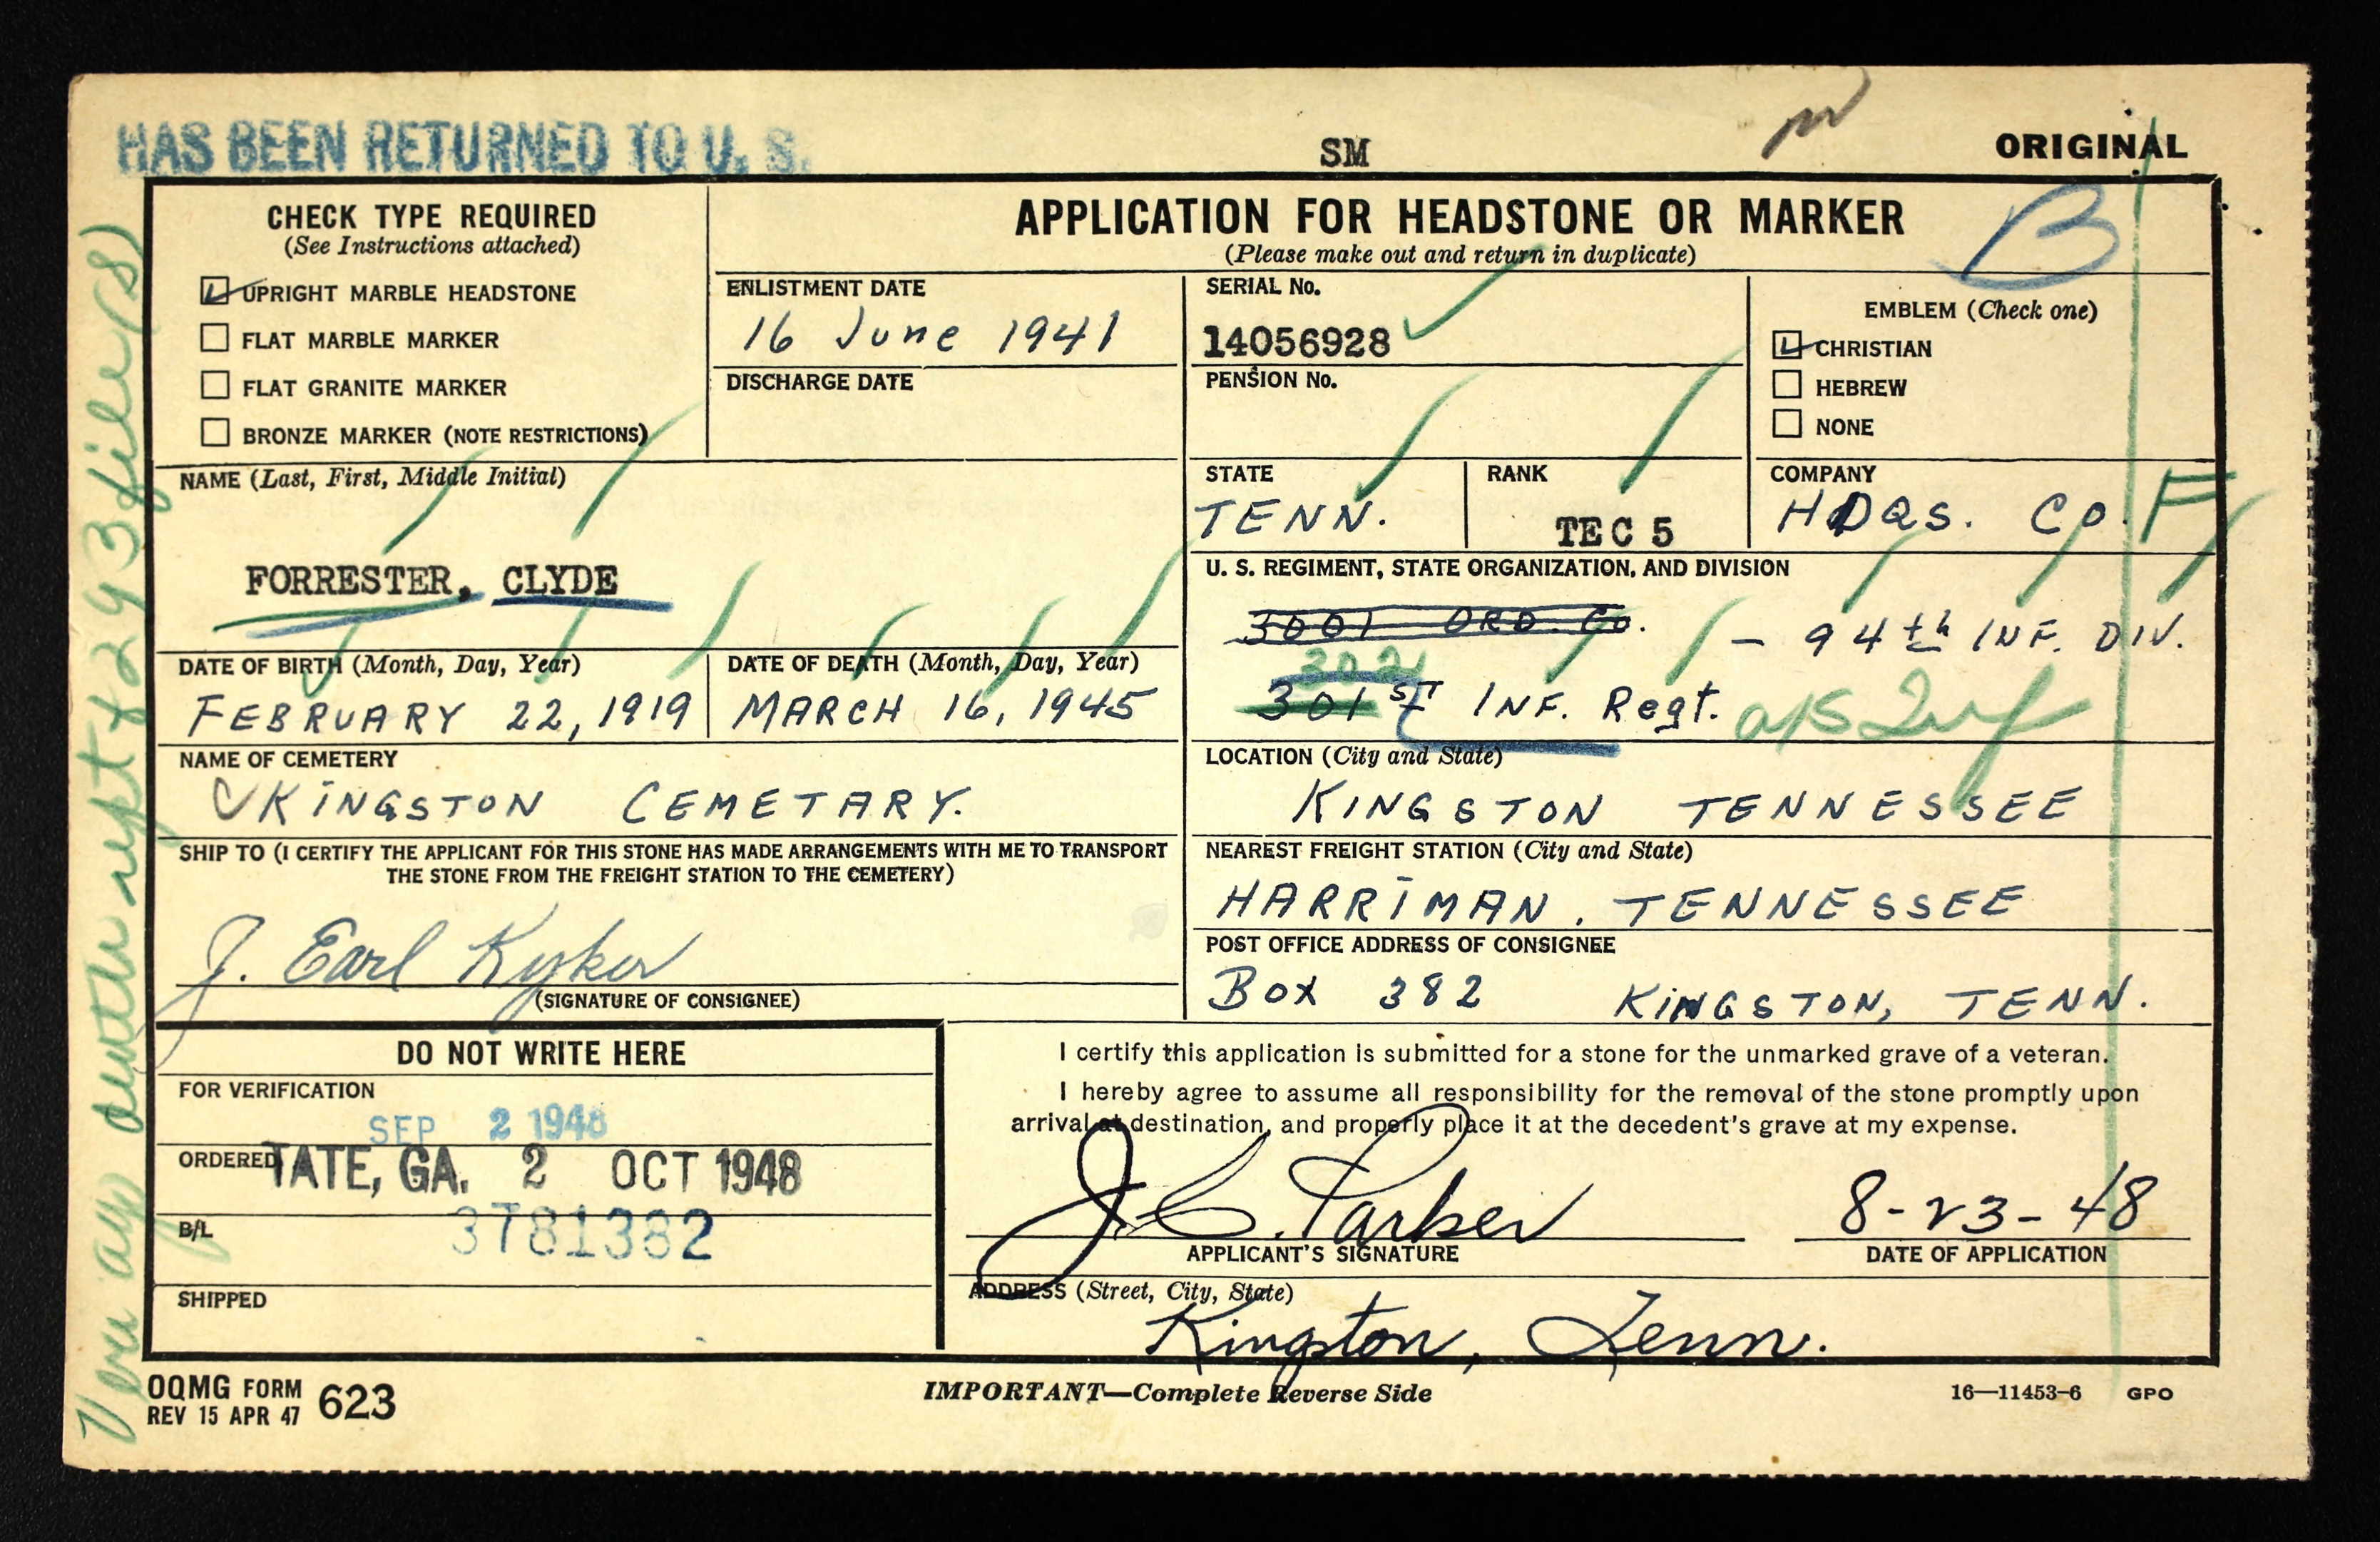 HAS BEEN RETURNED TO U. S.
SM
ORIGINAL
CHECK TYPE REQUIRED
(See Instructions attached)
UPRIGHT MARBLE HEADSTONE
FLAT MARBLE MARKER
FLAT GRANITE MARKER
BRONZE MARKER (NOTE RESTRICTIONS)
APPLICATION FOR HEADSTONE OR MARKER
(Please make out and return in duplicate)
B
ENLISTMENT DATE
16 June 1941
DISCHARGE DATE
SERIAL No.
14056928
PENSION No.
EMBLEM (Check one)
CHRISTIAN
HEBREW
NONE
NAME (Last, First, Middle Initial)
FORRESTER, CLYDE
STATE
TENN.
RANK
TEC 5
COMPANY
HDQS. CO. F
U. S. REGIMENT, STATE ORGANIZATION, AND DIVISION
3001 ORD. Co. - 94th INF. DIV.
302
301ST INF. Regt.
DATE OF BIRTH (Month, Day, Year)
FEBRUARY 22, 1919
DATE OF DEATH (Month, Day, Year)
MARCH 16, 1945
NAME OF CEMETERY
KINGSTON CEMETARY.
LOCATION (City and State)
KINGSTON TENNESSEE
SHIP TO (I CERTIFY THE APPLICANT FOR THIS STONE HAS MADE ARRANGEMENTS WITH ME TO TRANSPORT
THE STONE FROM THE FREIGHT STATION TO THE CEMETERY)
J. Earl Kyker
(SIGNATURE OF CONSIGNEE)
NEAREST FREIGHT STATION (City and State)
HARRIMAN. TENNESSEE
POST OFFICE ADDRESS OF CONSIGNEE
Box 382 KINGSTON, TENN.
DO NOT WRITE HERE
FOR VERIFICATION
SEP 2 1948
ORDERED TATE, GA. 2 OCT 1948
B/L 3781382
SHIPPED
I certify this application is submitted for a stone for the unmarked grave of a veteran.
I hereby agree to assume all responsibility for the removal of the stone promptly upon
arrival at destination, and properly place it at the decedent's grave at my expense.
J. C. Parker
APPLICANT'S SIGNATURE
8-23-48
DATE OF APPLICATION
ADDRESS (Street, City, State)
Kingston, Tenn.
OQMG FORM 623
REV 15 APR 47
IMPORTANT—Complete Reverse Side
16—11453-6 GPO